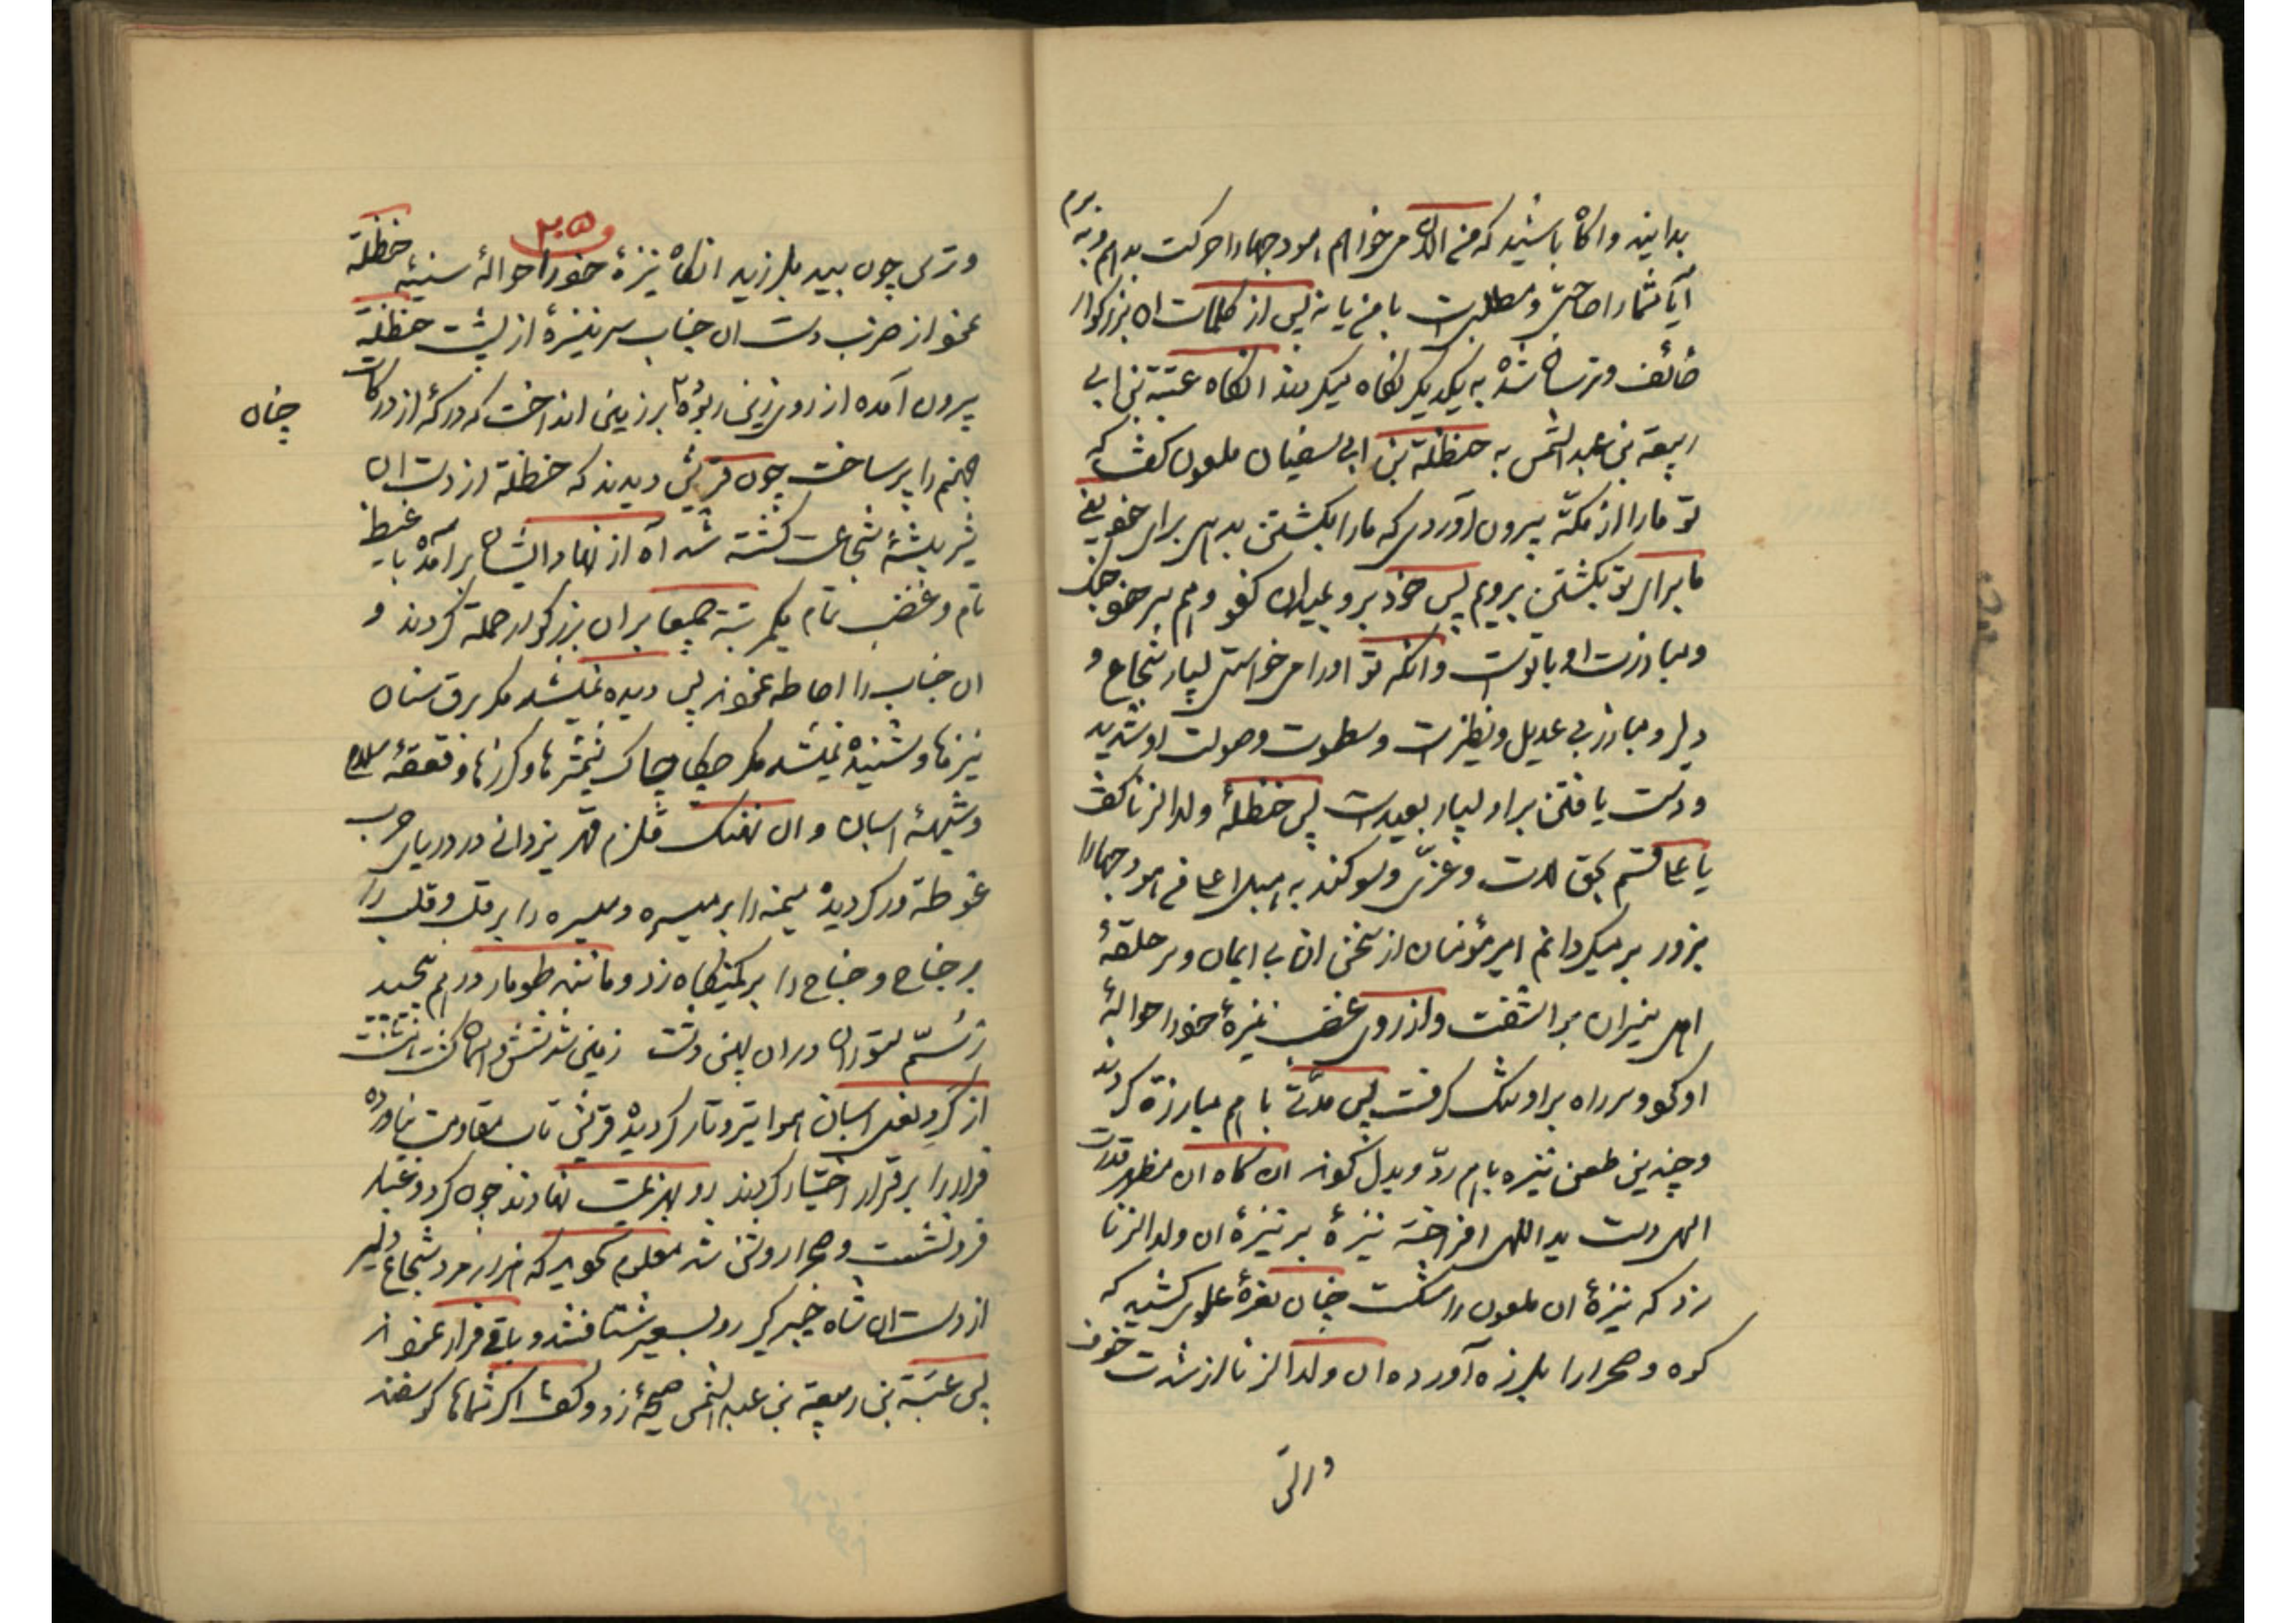 بدانید و اکاه باشید که من الان می خواهم هودجها را حرکت بدهم و به برم
آیا شما را حاجتی و مطلبی است با من یا نه پس از کلمات ان بزرکوار
خائف و ترسان شده به یکدیکر نکاه میکردند انکاه عتبة بن ابی
ربیعة بن عبد الشمس به حنظلة بن ابی سفیان ملعون کفت که
تو ما را از مکّه بیرون آوردی که ما را بکشتن بدهی برای خود یعنی
ما برای تو بکشتن برویم پس خود برو بمیدان کفو و هم سر خود جنک
و مبارزت او با توست وانکه تو او را می خواستی بسیار شجاع و
دلیر و مبارز بی عدیل و نظیر است و سطوت و صولت او شدید
و دست یافتن بر او بسیار بعید است پس حنظلهٔ ولد الزنا کفت
یا علی قسم بحق لات و عزّی و سوکند به هبل اعلی من هودجها را
بزور بر میکردانم امیر مؤمنان از سخن ان بی ایمان و سر حلقهٔ
اهل نیران بر اشفت و از روی غضب نیزهٔ خود را حوالهٔ
او نمود و سر راه بر او تنک کرفت پس مدّتی با هم مبارزة کردند
و چندین طعن نیزه با هم ردّ و بدل نمودند ان کاه ان مظهر قدرت
الهی دست ید اللهی افراخته نیزهٔ بر نیزهٔ ان ولد الزنا
زد که نیزهٔ ان ملعون را شکست چنان نعرهٔ علوی کشید که
کوه و صحرا را بلرزه آورده ان ولد الزنا از شدت خوف
و ترس
۲۰۵
و ترس چون بید بلرزید انکاه نیزهٔ خود را حوالهٔ سینهٔ حنظلة
نمود از ضرب دست ان جناب سر نیزهٔ از پشت حنظلة
بیرون آمده از روی زین ربوده بر زمین انداخت که درکهٔ از درکات
چنان
جهنم را پر ساخت چون قریش دیدند که حنظلة از دست ان
شیر بیشهٔ شجاعت کشته شد آه از نهاد ایشان بر آمده با غیظ
تام و غضب تمام یکمرتبة جمیعا بر ان بزرکوار حملة کردند و
ان جناب را احاطه نمودند پس دیده نمیشد مکر برق سنان
نیزها و شنیده نمیشد مکر چکا چاک شمشرها و کرزها و قعقعهٔ سلاح
و شیههٔ اسبان و ان نهنک قلزم قهر یزدانی در دریای حرب
غوطة ور کردیده میمنه را بر میسره و میسره را بر قلب و قلب را
بر جناح و جناح را بر کمینکاه زد و مانند طومار در هم پیچید
ز سُمّ ستوران در ان پهن دشت زمین شد شش و اسمان کشت هشت
از کرد نعل اسبان هوا تیره و تار کردیده قریش تاب مقاومت نیاورده
فرار را بر قرار اختیار کردند رو بهزیمت نهادند چون کرد و غبار
فرو نشست و صحرا روشن شد معلوم کردید که هزار مرد شجاع دلیر
از دست ان شاه خیبر کیر رو بسعیر شتافتند و باقی فرار نمودند
پس عتبة بن ربیعة بن عبد الشمس صیحهٔ زد و کفت اکر شماها کوسفند